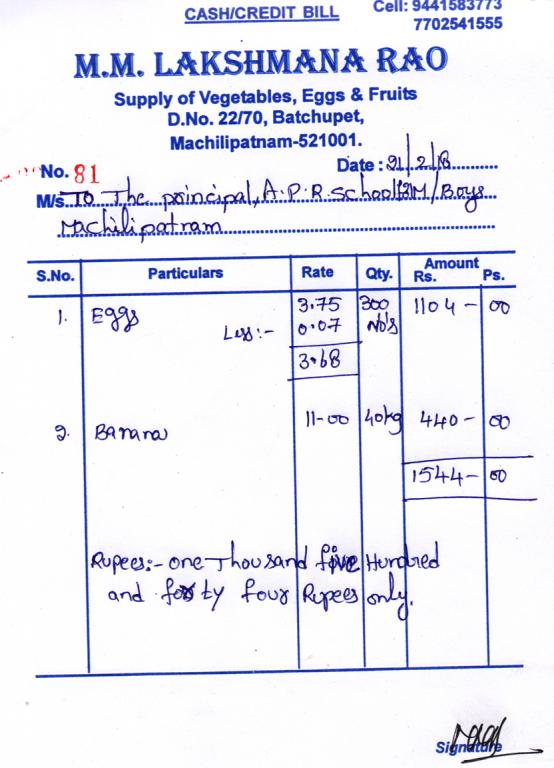 CASH/CREDIT BILL
Cell: 9441583773
7702541555
M.M. LAKSHMANA RAO
Supply of Vegetables, Eggs & Fruits
D.No. 22/70, Batchupet,
Machilipatnam-521001.
No. 81
Date : 21/2/18
M/s. To The principal, A.P.R. School /Boys
Machilipatnam
S.No. Particulars Rate Qty. Amount Rs. Ps.
1. Eggs 3.75 300 1104 - 00
Less:- 0.07 No's
3.68
2. Banana 11-00 40kg 440 - 00
1544 - 00
Rupees:- one Thousand five Hundred
and forty four Rupees only.
Signature